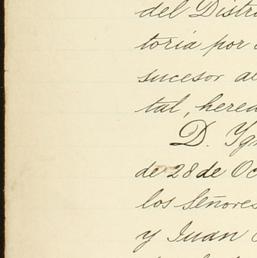 del Distri
toria por
sucesor a
tal, hered
D. Yg
de 28 de Oc
los Señores
y Juan